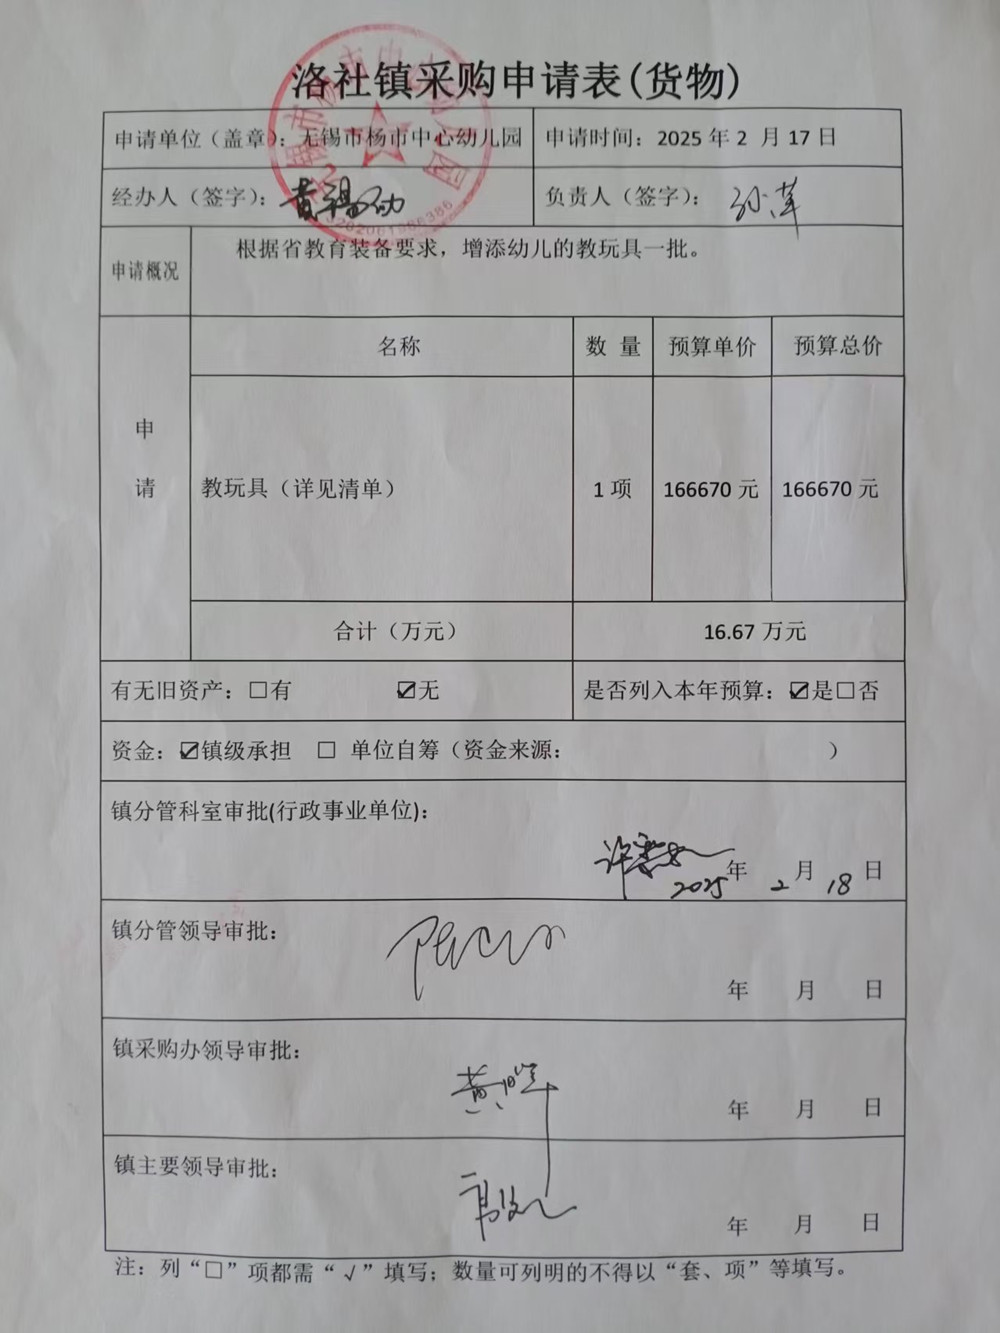 洛社镇采购申请表(货物)
申请单位（盖章）：无锡市杨市中心幼儿园 申请时间：2025 年 2 月 17 日
经办人（签字）： 负责人（签字）：孙萍
申请概况 根据省教育装备要求，增添幼儿的教玩具一批。
申请 名称 数 量 预算单价 预算总价
教玩具（详见清单） 1 项 166670 元 166670 元
合计（万元） 16.67 万元
有无旧资产：□有 ☑无 是否列入本年预算：☑是□否
资金：☑镇级承担 □ 单位自筹（资金来源： ）
镇分管科室审批(行政事业单位)：
2025 年 2 月 18 日
镇分管领导审批：
年 月 日
镇采购办领导审批：
黄晖
年 月 日
镇主要领导审批：
年 月 日
注：列“□”项都需“√”填写；数量可列明的不得以“套、项”等填写。